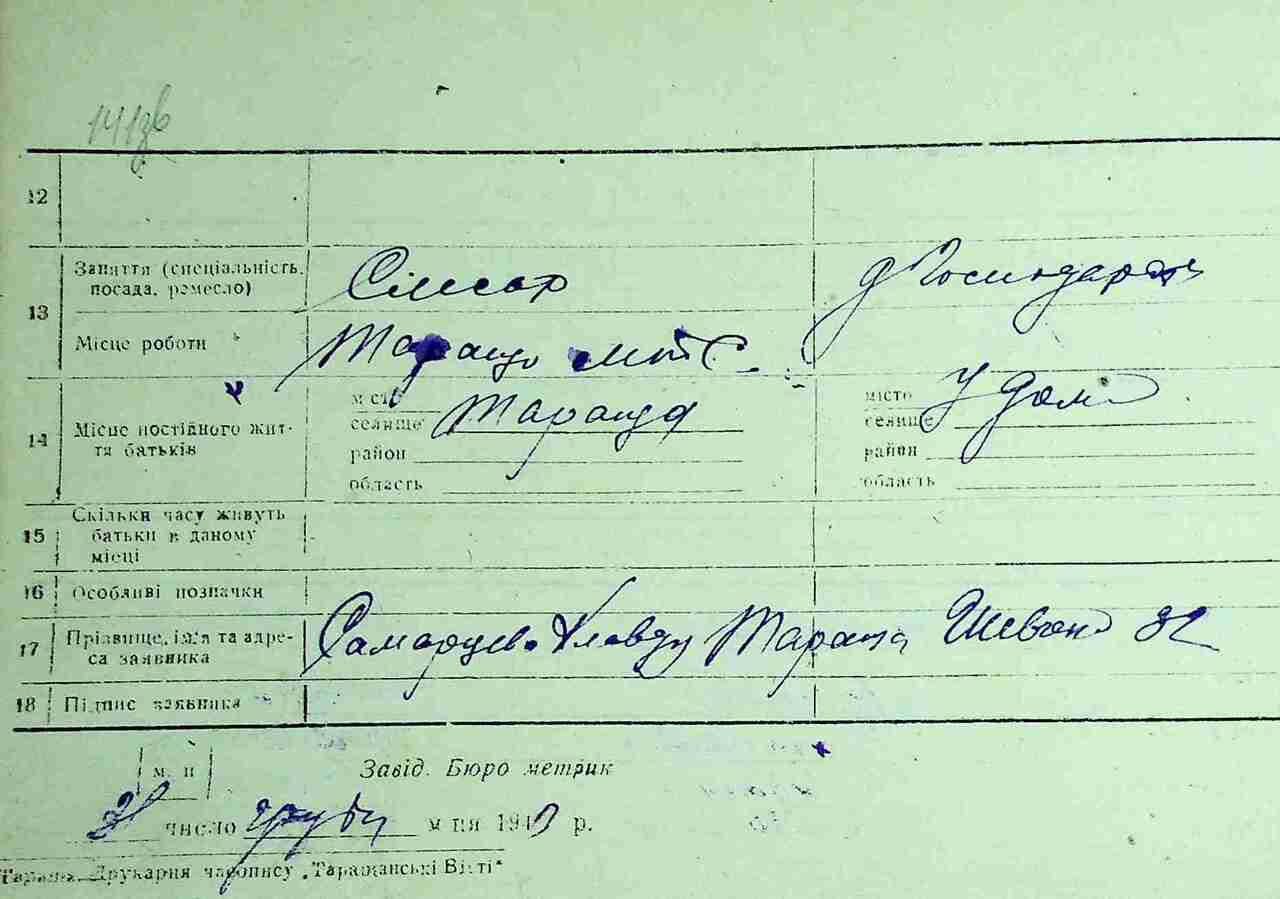 12
13 Заняття (спеціальність, посада, ремесло) Слюсар д/господарка
Місце роботи Тараща МТС
14 Місце постійного життя батьків
місто місто
селище Тараща селище У домі
район район
область область
15 Скільки часу живуть батьки в даному місці
16 Особливі позначки
17 Прізвище, ім'я та адреса заявника Самарцева Тараща Шевченк 32
18 Підпис заявника
м. п Завід. Бюро метрик
число груд м-ця 194 р.
Тараща. Друкарня часопису „Таращанські Вісті"